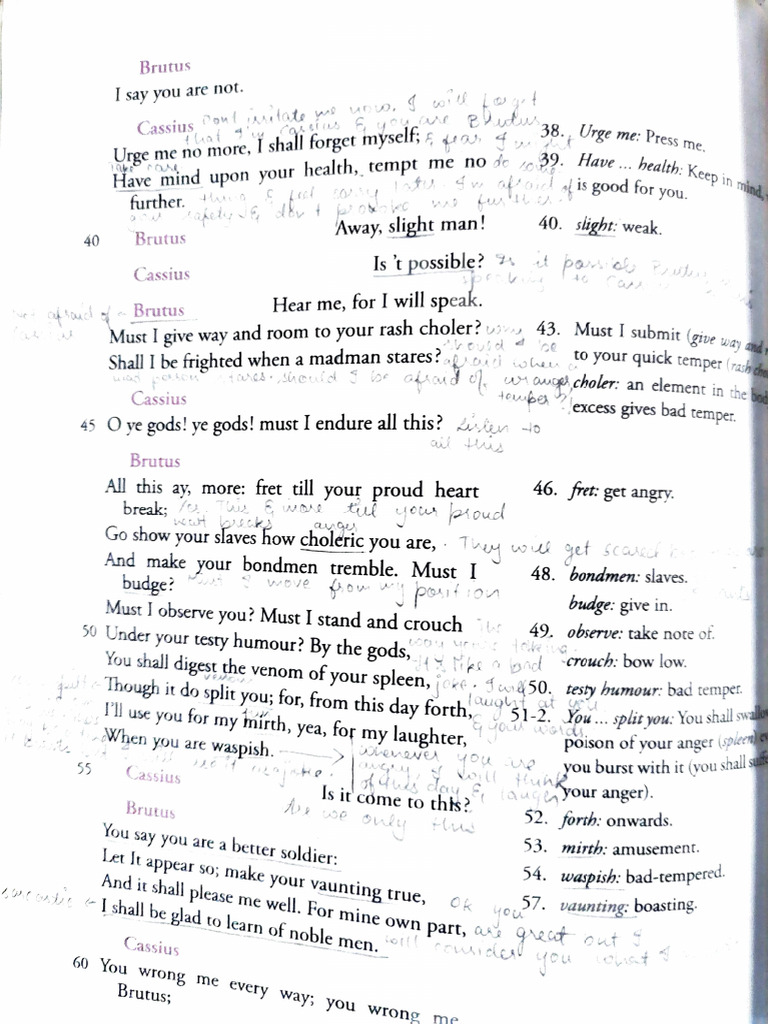 Brutus
I say you are not.
Cassius Dont irritate me now. I will forget
that I'm Cassius & you are Brutus
Urge me no more, I shall forget myself; & fear I might
take care
Have mind upon your health, tempt me no do some
further. thing & feel sorry later. I'm afraid of
safety & don't provoke me further.
Away, slight man!
40 Brutus
Cassius
Is 't possible? Is it possible Brutus
speaking to
Brutus
Not afraid of
Hear me, for I will speak.
Must I give way and room to your rash choler? why
should I be
Shall I be frighted when a madman stares? afraid when a
mad person stares. should I be afraid of
temper?
Cassius
45 O ye gods! ye gods! must I endure all this? Listen to
all this
Brutus
All this ay, more: fret till your proud heart
break; Yes. This & more till your proud
heart breaks
anger
Go show your slaves how choleric you are, They will get scared
And make your bondmen tremble. Must I
budge? Must I move from my position
Must I observe you? Must I stand and crouch
50 Under your testy humour? By the gods,
You shall digest the venom of your spleen,
like a bad
joke. I will
Though it do split you; for, from this day forth, laugh at you
I'll use you for my mirth, yea, for my laughter, & your words
When you are waspish. whenever you are
angry, I will think
of this day & laugh
55 Cassius
Is it come to this?
Are we only this
Brutus
You say you are a better soldier:
Let It appear so; make your vaunting true, Ok you
And it shall please me well. For mine own part, are great but I
sarcastic
I shall be glad to learn of noble men. will consider you what I
Cassius
60 You wrong me every way; you wrong me
Brutus;
38. Urge me: Press me.
39. Have ... health: Keep in mind,
is good for you.
40. slight: weak.
43. Must I submit (give way and
to your quick temper (rash
choler: an element in the
excess gives bad temper.
46. fret: get angry.
48. bondmen: slaves.
budge: give in.
49. observe: take note of.
crouch: bow low.
50. testy humour: bad temper.
51-2. You ... split you: You shall swallow
poison of your anger (spleen)
you burst with it (you shall
your anger).
52. forth: onwards.
53. mirth: amusement.
54. waspish: bad-tempered.
57. vaunting: boasting.